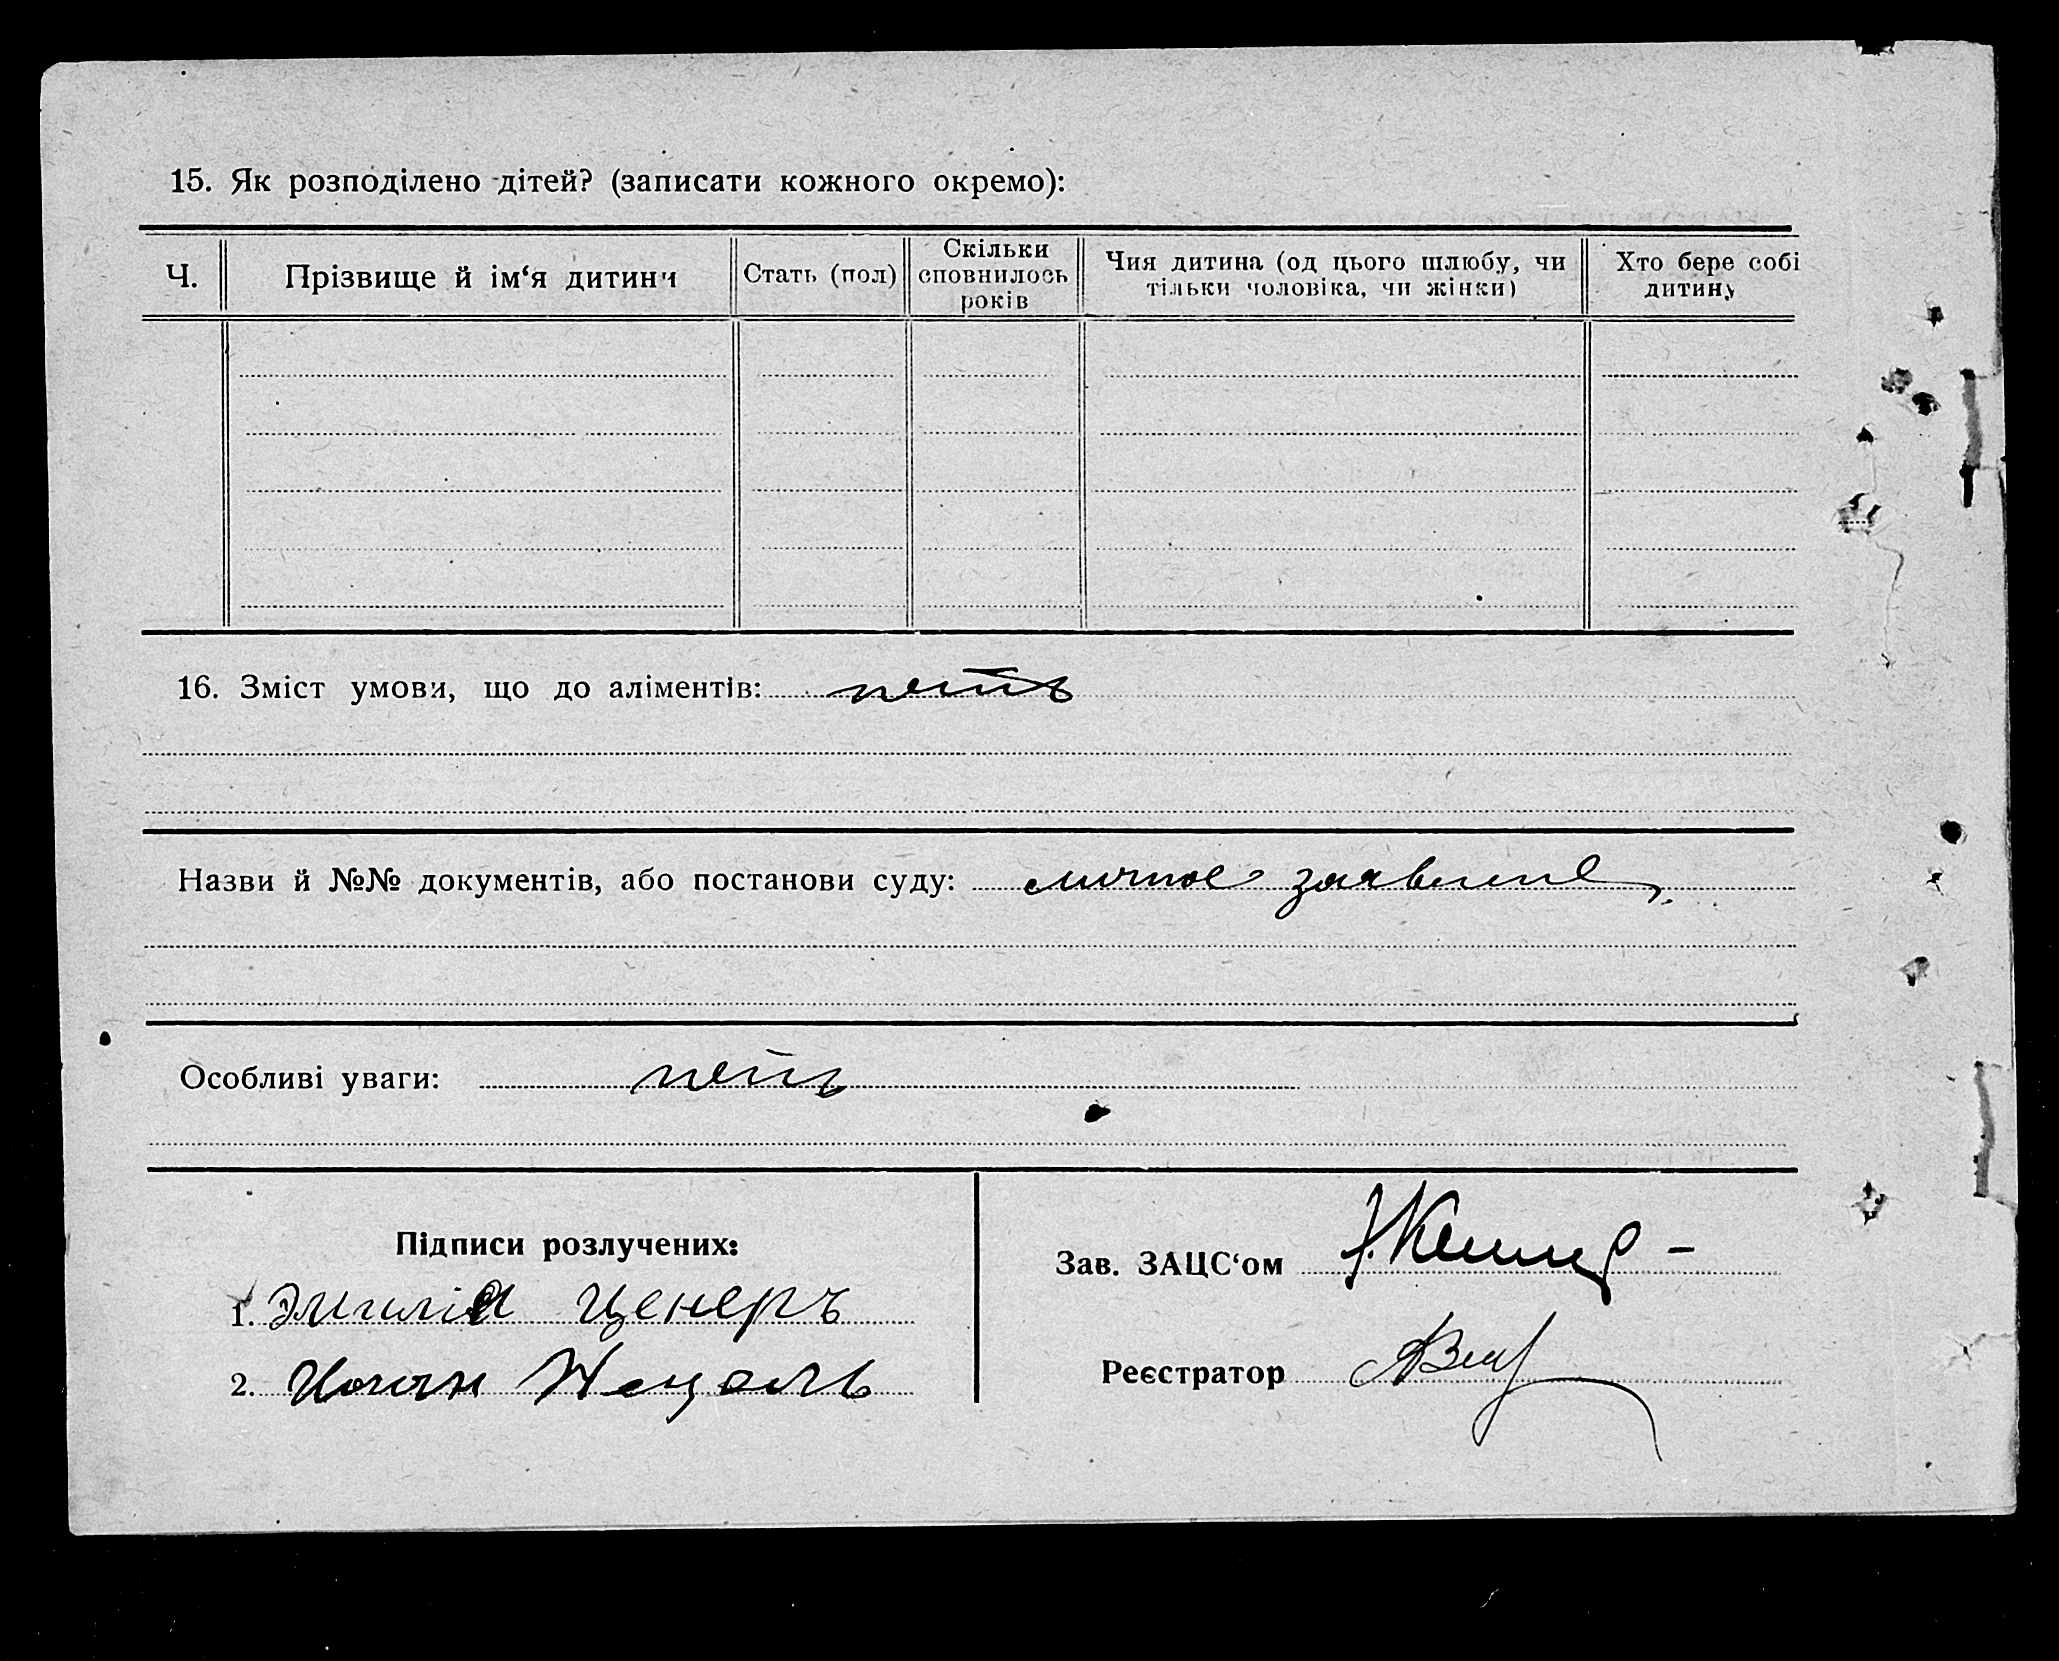 15. Як розподілено дітей? (записати кожного окремо):
Ч.
Прізвище й ім‘я дитини
Стать (пол)
Скільки
сповнилось
років
Чия дитина (од цього шлюбу, чи
тільки чоловіка, чи жінки)
Хто бере собі
дитину
16. Зміст умови, що до аліментів: нетъ
Назви й №№ документів, або постанови суду: личное заявление
Особливі уваги: нетъ
Підписи розлучених:
1. Эмилія Ценеръ
2.
Зав. ЗАЦС‘ом
Реєстратор